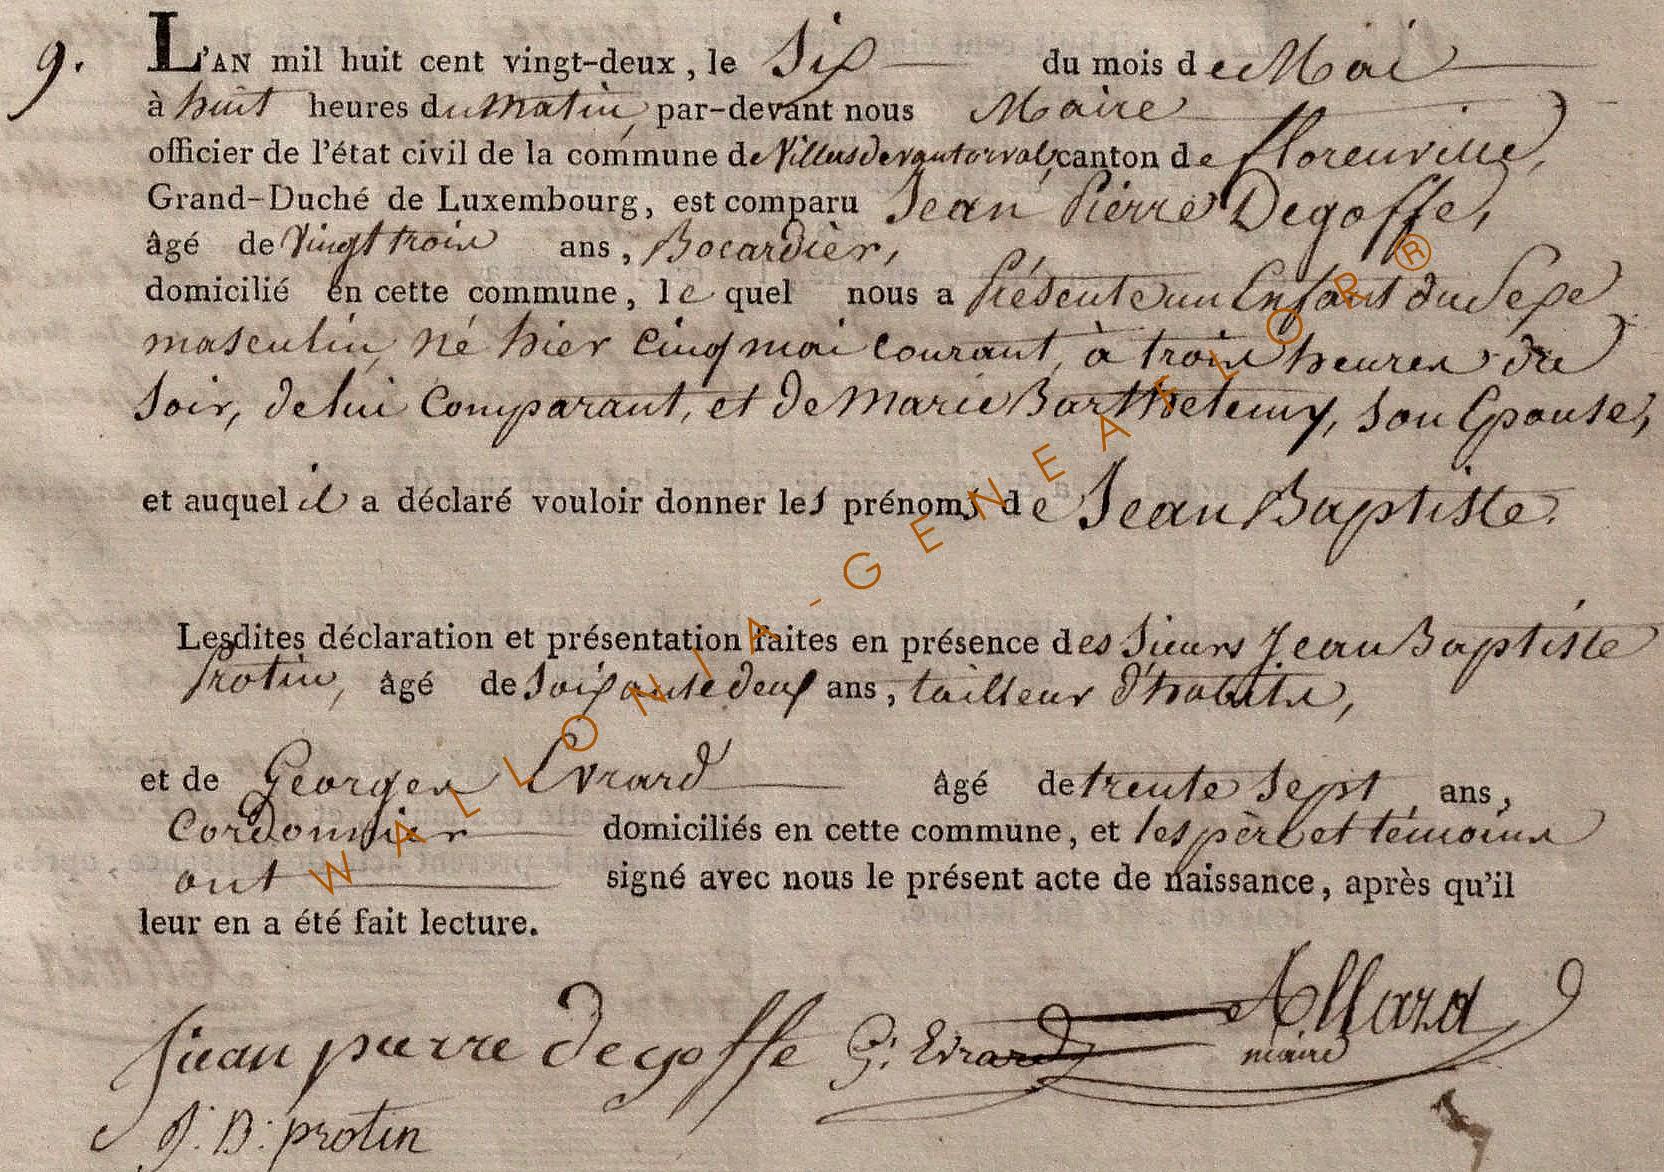 9. L'AN mil huit cent vingt-deux, le Six du mois de Mai
à huit heures du matin, par-devant nous Maire
officier de l'état civil de la commune de Villersdevantorval, canton de florenville,
Grand-Duché de Luxembourg, est comparu Jean Pierre Degoffe,
âgé de Vingt trois ans, Bocardier,
domicilié en cette commune, le quel nous a Présenté un Enfant du Sexe
masculin, né hier cinq mai courant, à trois heures du
soir, de lui comparant, et de marie Barthelemy, son Epouse,
et auquel il a déclaré vouloir donner les prénoms de Jean Baptiste.
Lesdites déclaration et présentation faites en présence des Sieurs Jean Baptiste
Protin, âgé de Soixante deux ans, tailleur d'habits,
et de Georges Evrard âgé de trente sept ans,
Cordonnier domiciliés en cette commune, et les père et témoins
ont signé avec nous le présent acte de naissance, après qu'il
leur en a été fait lecture.
Allard
jean pierre degoffe G: Evrard maire
J: B: protin
WALLONIA-GENEAFLOR ®